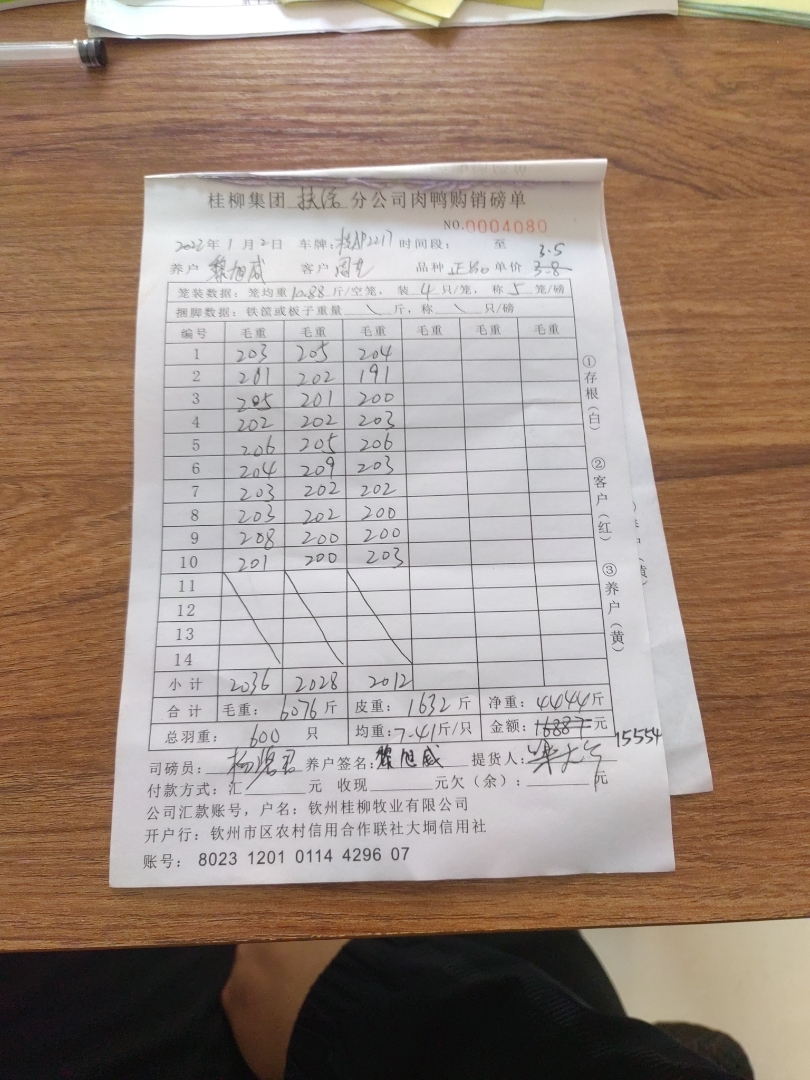 桂柳集团 扶绥 分公司肉鸭购销磅单
NO.0004080
2022年1月2日 车牌: 桂AP2217 时间段: 至
3.5
养户 黎旭威 客户 品种 正品 单价 3.8
笼装数据: 笼均重10.88斤/空笼, 装 4 只/笼, 称 5 笼/磅
捆脚数据: 铁筐或板子重量 \ 斤, 称 \ 只/磅
编号 毛重 毛重 毛重 毛重 毛重 毛重
1 203 205 204
2 201 202 191
3 205 201 200
4 202 202 203
5 206 205 206
6 204 209 203
7 203 202 202
8 203 202 200
9 208 200 200
10 201 200 203
11
12
13
14
小计 2036 2028 2012
合计 毛重: 6076 斤 皮重: 1632 斤 净重: 4444斤
总羽重: 600 只 均重: 7.41斤/只 金额: 16887元
15554
司磅员: 养户签名: 黎旭威 提货人:
付款方式: 汇 元 收现 元欠(余): 元
公司汇款账号, 户名: 钦州桂柳牧业有限公司
开户行: 钦州市区农村信用合作联社大垌信用社
账号: 8023 1201 0114 4296 07
①存根(白)
②客户(红)
③养户(黄)